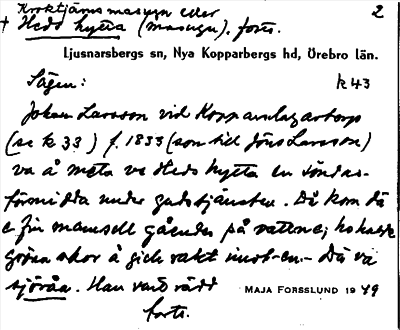 Kroktjärns masugn eller 2
+ Heds hytta (masugn), forts.
Ljusnarsbergs sn, Nya Kopparbergs hd, Örebro län.
Sägen: k 43
Johan Larsson vid Kopparslagartorp
(se k 33) f. 1833 (son till Jöns Larsson)
va å meta ve Heds hytta en söndas-
förmidda under gudstjänsten. Då kom dä
e fin mamsell gåendes på vattne; ho hadde
gröna skor å gick rakt imot en. Dä va
sjöråa. Han vart rädd MAJA FORSSLUND 1949
forts.